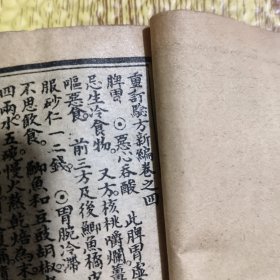 重訂驗方新編卷之四
脾胃 ⊙惡心吞酸 此脾胃虛
忌生冷食物 又方核桃嚼爛薑
嘔惡食 前三方及後鯽魚橘皮
服砂仁一二錢 ⊙胃脘冷滯
不思飲食 鯽魚和豆豉胡椒
四兩水五碗慢火熬乾焙為末